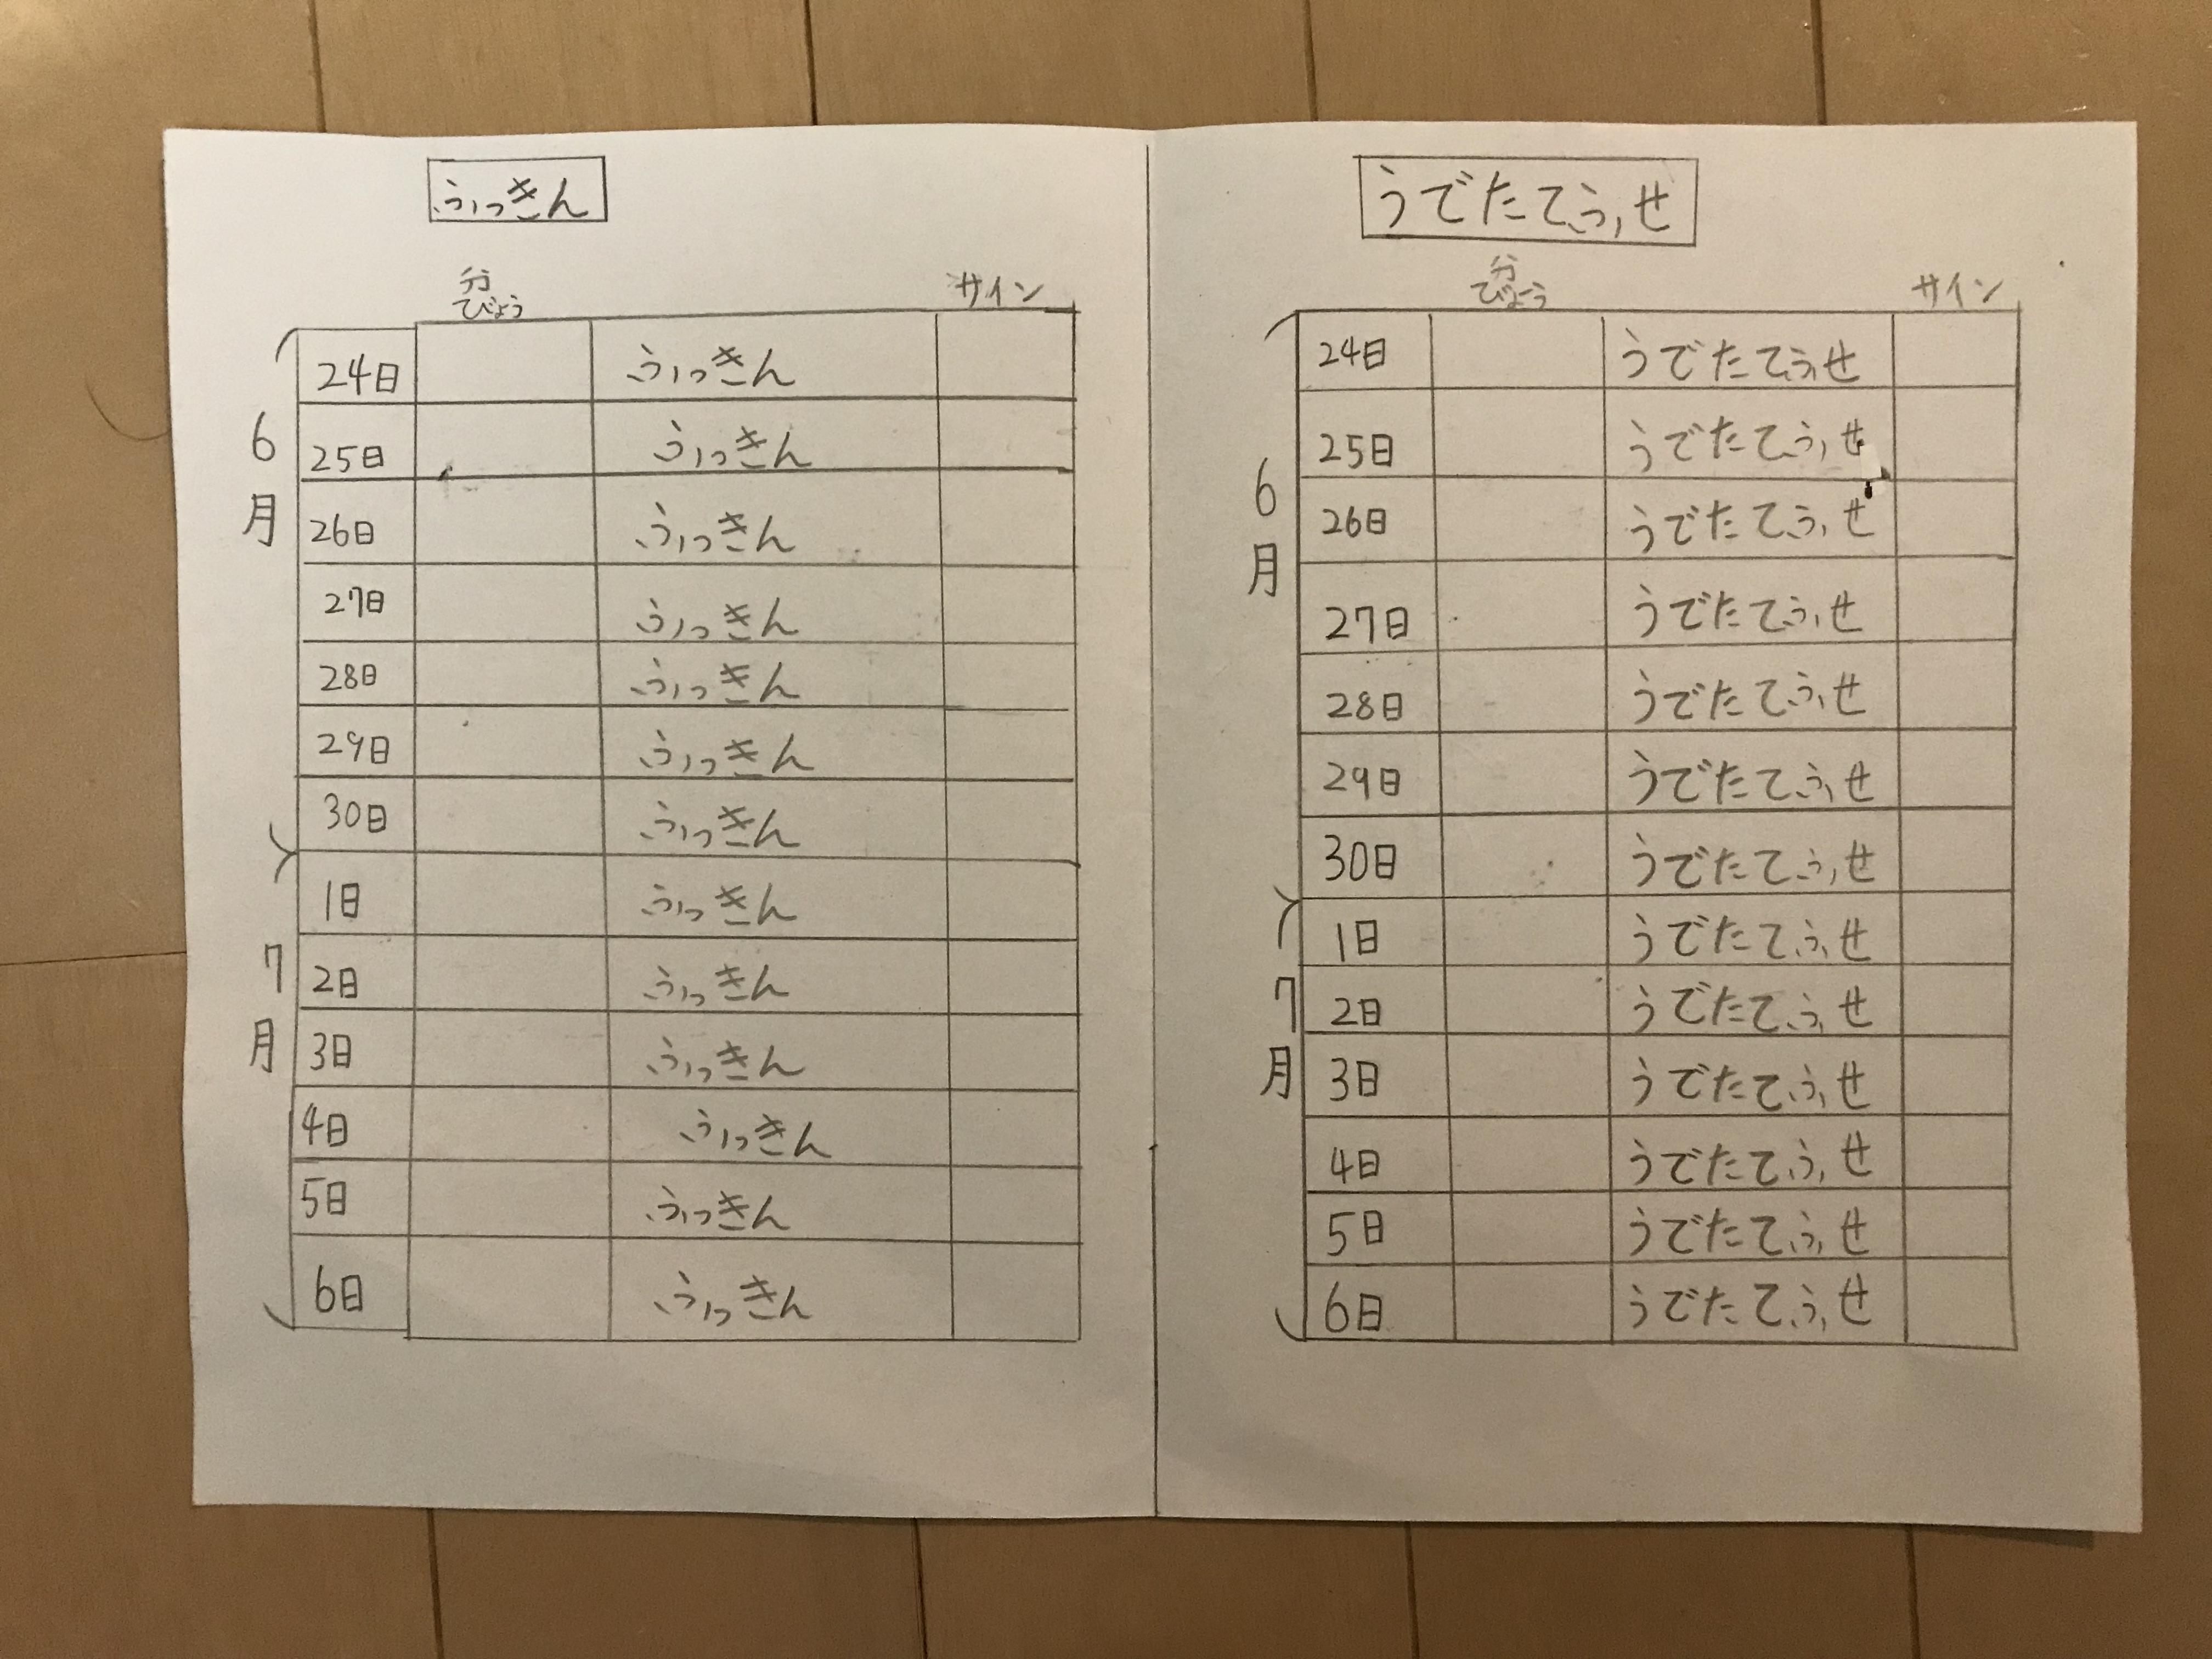 ふっきん
分
びょう
サイン
6月
24日 ふっきん
25日 ふっきん
26日 ふっきん
27日 ふっきん
28日 ふっきん
29日 ふっきん
30日 ふっきん
7月
1日 ふっきん
2日 ふっきん
3日 ふっきん
4日 ふっきん
5日 ふっきん
6日 ふっきん
うでたてふせ
分
びょう
サイン
6月
24日 うでたてふせ
25日 うでたてふせ
26日 うでたてふせ
27日 うでたてふせ
28日 うでたてふせ
29日 うでたてふせ
30日 うでたてふせ
7月
1日 うでたてふせ
2日 うでたてふせ
3日 うでたてふせ
4日 うでたてふせ
5日 うでたてふせ
6日 うでたてふせ